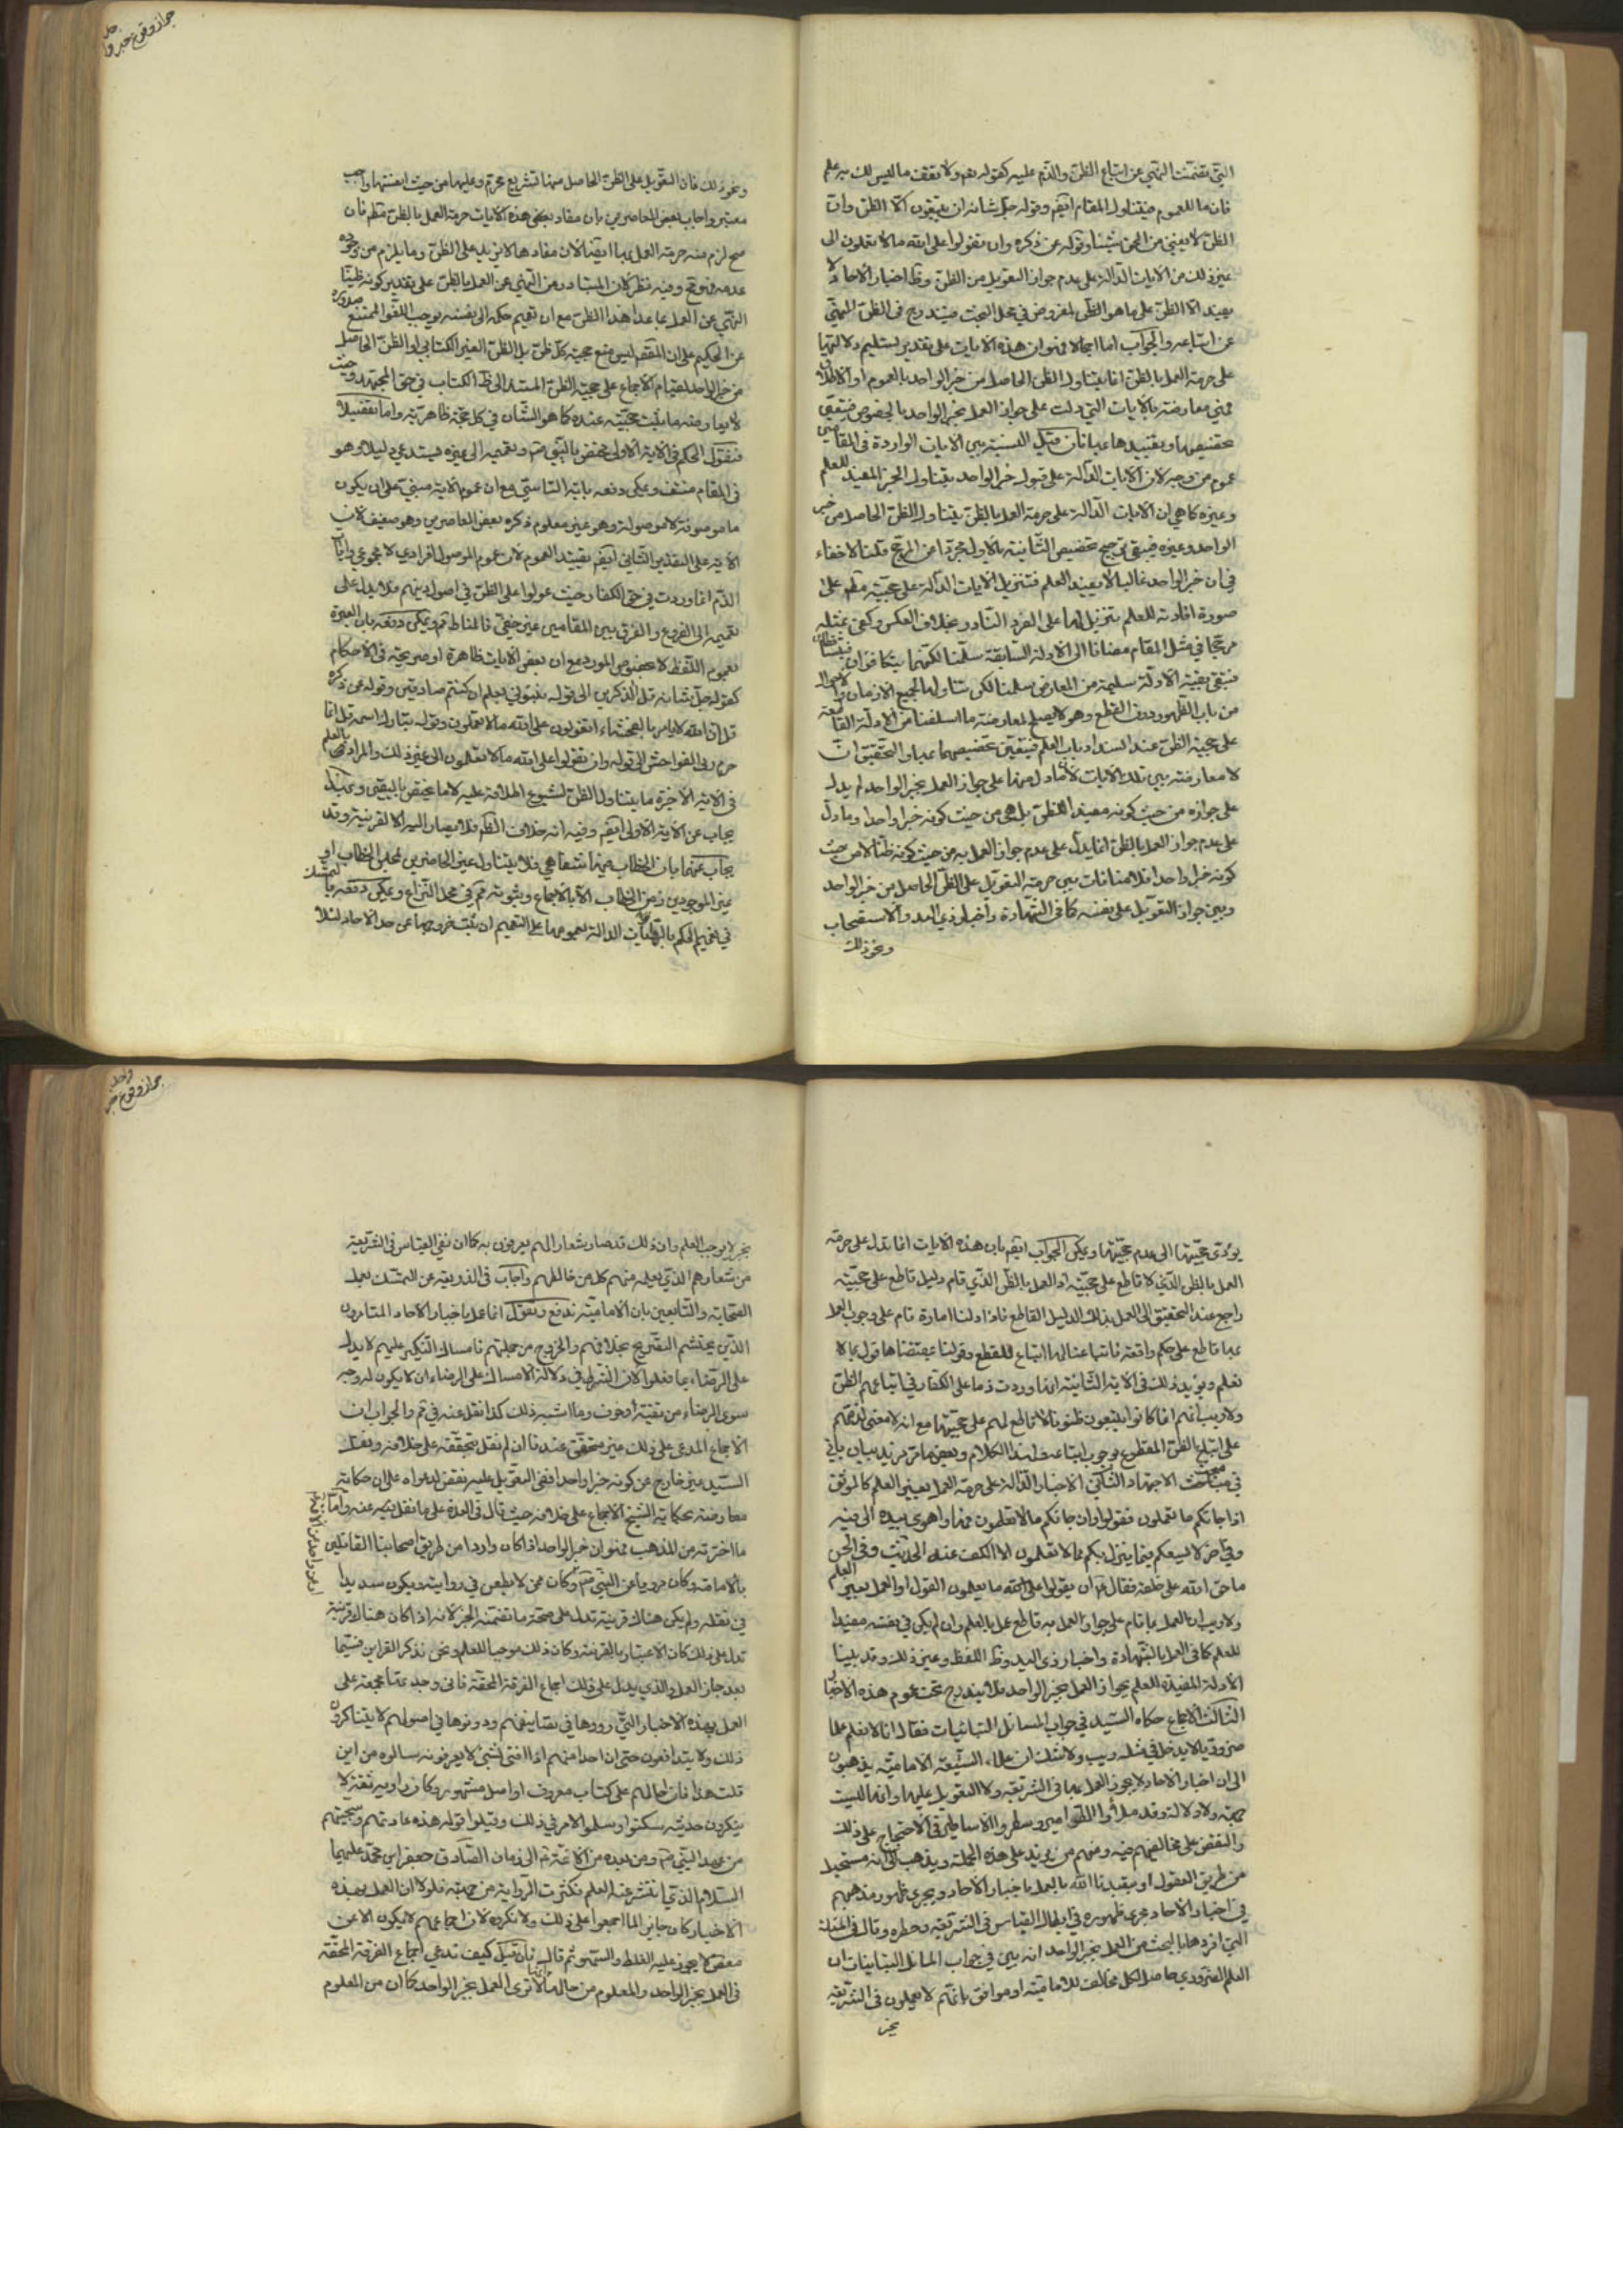 التي تضمنت النهي عن اتباع الظن والذم عليه كقوله تعم ولا تقف ما ليس لك به علم
فان ما للعموم فيتناول المقام ايضم وقوله جل شانه ان يتبعون الا الظن وان
الظن لا يغني من الحق شيئا وقوله عن ذكره وان تقولوا على الله ما لا تعلمون الى
غير ذلك من الايات الدالة على عدم جواز التعويل من الظن وظ اخبار الاحاد لا
يفيد الا الظن على ما هو الظن المفروض في محل البحث فيندرج في الظن المنهي
عن اتباعه والجواب اما اجمالا فهو ان هذه الايات على تقدير تسليم دلالتها
على حرمة العمل بالظن انما يتناول الظن الحاصل من خبر الواحد بالعموم او الاطلاق
فهي معارضة بالايات التي دلت على جواز العمل بخبر الواحد بالخصوص فيتعين
تخصيصها وتقييدها بها فان قيل النسبة بين الايات الواردة في المقامين
عموم من وجه لان الايات الدالة على قبول خبر الواحد يتناول الخبر المفيد للعلم
وغيره كما هي ان الايات الدالة على حرمة العمل بالظن يتناول الظن الحاصل من خبر
الواحد وغيره فيبقى ترجيح تخصيص الثانية بالاولى مجردا عن المرجح قلنا لا خفاء
في ان خبر الواحد غالبا لا يفيد العلم فتنزيل الايات الدالة على حجيته مطم على
صورة افادته للعلم تنزيل لها على الفرد النادر بخلاف العكس وكفى بمثله
مرجحا في مثل المقام مضافا الى الادلة السابقة سلمنا لكنهما يتكافؤان فيتساقطان
فتبقى بقية الادلة سليمة من المعارض سلمنا لكن تناولها لجميع الازمان والاحوال
من باب الظهور دون القطع وهو لا يصلح لمعارضة ما اسلفنا من الادلة القاطعة
على حجية الظن عند انسداد باب العلم فيتعين تخصيصها بها والتحقيق ان
لا معارضة بين تلك الايات لان ما دل منها على جواز العمل بخبر الواحد لم يدل
على جوازه من حيث كونه مفيدا للظن بل هي من حيث كونه خبرا واحدا وما دل
على عدم جواز العمل بالظن انما يدل على عدم جواز العمل به من حيث كونه ظنا لا من حيث
كونه خبرا واحدا فلا منافات بين حرمة التعويل على الظن الحاصل من خبر الواحد
وبين جواز التعويل على نفسه كما في الشهادة واخبار ذي اليد والاستصحاب
ونحو ذلك
جواز وقوع خبر واحد
ونحو ذلك فان التعويل على الظن الحاصل منها تشريع محرم وعليها من حيث انفسها واجب
معتبر واجاب بعض المعاصرين بان مفاد بعض هذه الايات حرمة العمل بالظن مطم فان
صح لزم منه حرمة العمل بها ايضا لان مفادها لا يزيد على الظن وما يلزم من وجوده
عدمه فهو مح وفيه نظر لان المتبادر من النهي عن العمل بالظن على تقدير كونه ظنيا
النهي عن العمل بما عدا هذا الظن مع ان تعميم حكمه الى نفسه يوجب اللغو الممتنع صدوره
عن الحكيم على ان المقصم ليس منع حجية كل ظن بل الظن الغير الكتابي او الظن الحاصل
من خبر الواحد لقيام الاجماع على حجية الظن المستند الى ظ الكتاب في حق المجتهد وحيث
لا يعارضه ما يثبت حجيته عنده كما هو الشان في كل حجة ظاهرية واما تفصيلا
فنقول الحكم في الاية الاولى مختص بالنبي صم وتعميمه الى غيره يستدعي دليلا وهو
في المقام منتف ويمكن دفعه باية التاسي مع ان عموم الاية مبني على ان يكون
ما موصوفة لا موصولة وهو غير معلوم ذكره بعض المعاصرين وهو ضعيف لان
الاية على التقدير الثاني ايضم يفيد العموم لان عموم الموصول افرادي لا مجموعي واما
الذم انما وردت في حق الكفار حيث عولوا على الظن في اصول دينهم فلا يدل على
تعميمه الى الفروع والفرق بين المقامين غير خفي فالمناط تم ويمكن دفعه بان العبرة
بعموم اللفظ لا بخصوص المورد مع ان بعض الايات ظاهرة او صريحة في الاحكام
كقوله جل شانه قل الذكرين الى قوله نبئوني بعلم ان كنتم صادقين وقوله عن ذكره
قل ان الله لا يامر بالفحشاء اتقولون على الله ما لا تعلمون وقوله تبارك اسمه قل انما
حرم ربي الفواحش الى قوله وان تقولوا على الله ما لا تعلمون الى غير ذلك والمراد بالعلم
في الاية الاخيرة ما يتناول الظن لشيوع اطلاقه عليه لا ما يختص باليقين وبهذا
يجاب عن الاية الاولى ايضم وفيه انه خلاف الظم فلا يصار اليه الا لقرينة وقد
يجاب عنها بان الخطاب فيها شفاهي فلا يتناول غير الحاضرين لمجلس الخطاب او
غير الموجودين زمن الخطاب الا بالاجماع وثبوته هم في محل النزاع ويمكن دفعه بالتمسك
في تعميم الحكم بالروايات الدالة بعمومها على التعميم ان ثبت خروجها عن حد الاحاد لئلا
يؤدي حجيتها الى عدم حجيتها ويمكن الجواب ايضم بان هذه الايات انما تدل على حرمة
العمل بالظن الذي لا قاطع على حجيته اذ العمل بالظن الذي قام دليل قاطع على حجيته
راجع عند التحقيق الى العمل بذلك الدليل القاطع فاذا دلنا امارة قام على وجوب العمل
بها قاطع على حكم واقعة فاتباعنا لها اتباع للقطع وقولنا بمقتضاها قول بما لا
نعلم ويؤيد ذلك في الاية الثانية انها وردت ذما على الكفار في اتباعهم الظن
ولا ريب انهم انما كانوا يتبعون ظنونا لا قاطع لهم على حجيتها مع انه لا معنى لذمهم
على اتباع الظن المقطوع بوجوب اتباعه ولهذا الكلام وبعض ما مر مزيد بيان ياتي
في مبحث الاجتهاد الثاني الاخبار الدالة على حرمة العمل بغير العلم كالموثق
اذا جائكم ما تعلمون فقولوا وان جائكم ما لا تعلمون فها واهوى بيده الى فيه
وفي اخر لا يسعكم فيما ينزل بكم مما لا تعلمون الا الكف عنه الحديث وفي الحسن
ما حق الله على خلقه فقال ع ان يقولوا ما يعلمون القول او العمل بغير العلم
ولا ريب ان العمل بما قام على جواز العمل به قاطع عمل بالعلم وان لم يكن في نفسه مفيدا
للعلم كما في العمل بالشهادة واخبار ذى اليد وظ اللفظ وغير ذلك وقد بينا
الادلة المفيدة للعلم بجواز العمل بخبر الواحد فلا يندرج تحت عموم هذه الاخبار
الثالث الاجماع حكاه السيد في جواب المسائل التبانيات فقال انا لا نعلم علما
ضروريا لا يدخل في مثله ريب ولا شك ان علماء الشيعة الامامية يذهبون
الى ان اخبار الاحاد لا يجوز العمل بها في الشريعة ولا التعويل عليها وانها ليست
بحجة ولا دلالة وقد ملأوا الطوامير وسطروا الاساطير في الاحتجاج على ذلك
والنقض على مخالفيهم فيه ومنهم من يزيد على هذه الجملة ويذهب الى انه مستحيل
من طريق العقول ان يتعبدنا الله بالعمل باخبار الاحاد ويجري ظهور مذهبهم
في اخبار الاحاد مجرى ظهوره في ابطال القياس في الشريعة وحظره وقال في المسئلة
التي افردها بالبحث من العمل بخبر الواحد انه بين في جواب المسائل التبانيات ان
العلم الضروري حاصل لكل مخالف للامامية او موافق بانهم لا يعملون في الشريعة
بخبر
جواز وقوع خبر واحد
بخبر لا يوجب العلم وان ذلك قد صار شعارا لهم يعرفون به كما ان نفي القياس في الشريعة
من شعارهم الذي يعلمه منهم كل من خالطهم واجاب في الذريعة عن التمسك بعمل
الصحابة والتابعين بان الامامية تدفع وتقول انما عمل باخبار الاحاد المتامرون
الذين يحتشم التصريح بخلافهم والخروج من جملتهم فامساك النكير عليهم لا يدل
على الرضاء بما فعلوا لان الشرط في دلالة الامساك على الرضاء ان لا يكون له وجه
سوى الرضاء من تقية او خوف وما اشبه ذلك كذا نقل عنه في تم والجواب ان
الاجماع المدعى على ذلك غير متحقق عندنا ان لم نقل بتحققه على خلافه ونقل
السيد غير خارج عن كونه خبرا واحدا ففي التعويل عليه نقض لدعواه على ان حكايته
معارضة بحكاية الشيخ الاجماع على خلافه حيث قال في العدة على ما نقل عنه واما
ما اخترته من المذهب فهو ان خبر الواحد اذا كان واردا من طريق اصحابنا القائلين
بالامامة وكان مرويا عن النبي صم وكان ممن لا يطعن في روايته ويكون سديدا
في نقله ولم يكن هناك قرينة تدل على صحة ما تضمنه الخبر لانه اذا كان هناك قرينة
تدل على ذلك كان الاعتبار بالقرينة وكان ذلك موجبا للعلم ونحن نذكر القراين فيما
بعد جاز العمل والذي يدل على ذلك اجماع الفرقة المحقة فاني وجدتها مجمعة على
العمل بهذه الاخبار التي رووها في تصانيفهم ودونوها في اصولهم لا يتناكرون
ذلك ولا يتدافعون حتى ان احدا منهم اذا افتى بشئ لا يعرفونه سالوه من اين
قلت هذا فان احالهم على كتاب معروف او اصل مشهور وكان راويه ثقة لا
ينكرون حديثه سكتوا وسلموا الامر في ذلك وقبلوا قوله هذه عادتهم وسجيتهم
من عهد النبي صم ومن بعده من الائمة عم الى زمان الصادق جعفر ابن محمد عليهما
السلام الذي انتشر عنه العلم فكثرت الرواية من جهته فلولا ان العمل بهذه
الاخبار كان جايزا لما اجمعوا على ذلك ولانكروه لان اجماعهم لا يكون الا عن
معصوم لا يجوز عليه الغلط والسهو ثم قال فان قيل كيف تدعي اجماع الفرقة المحقة
في العمل بخبر الواحد والمعلوم من حالها انها لا ترى العمل بخبر الواحد كما ان من المعلوم